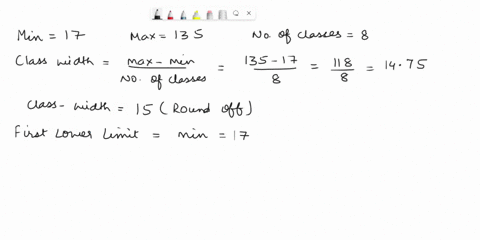 Min = 17 Max = 135 No. of classes = 8
Class width = max - min / No. of classes = 135 - 17 / 8 = 118 / 8 = 14.75
Class-width = 15 (Round off)
First Lower Limit = min = 17